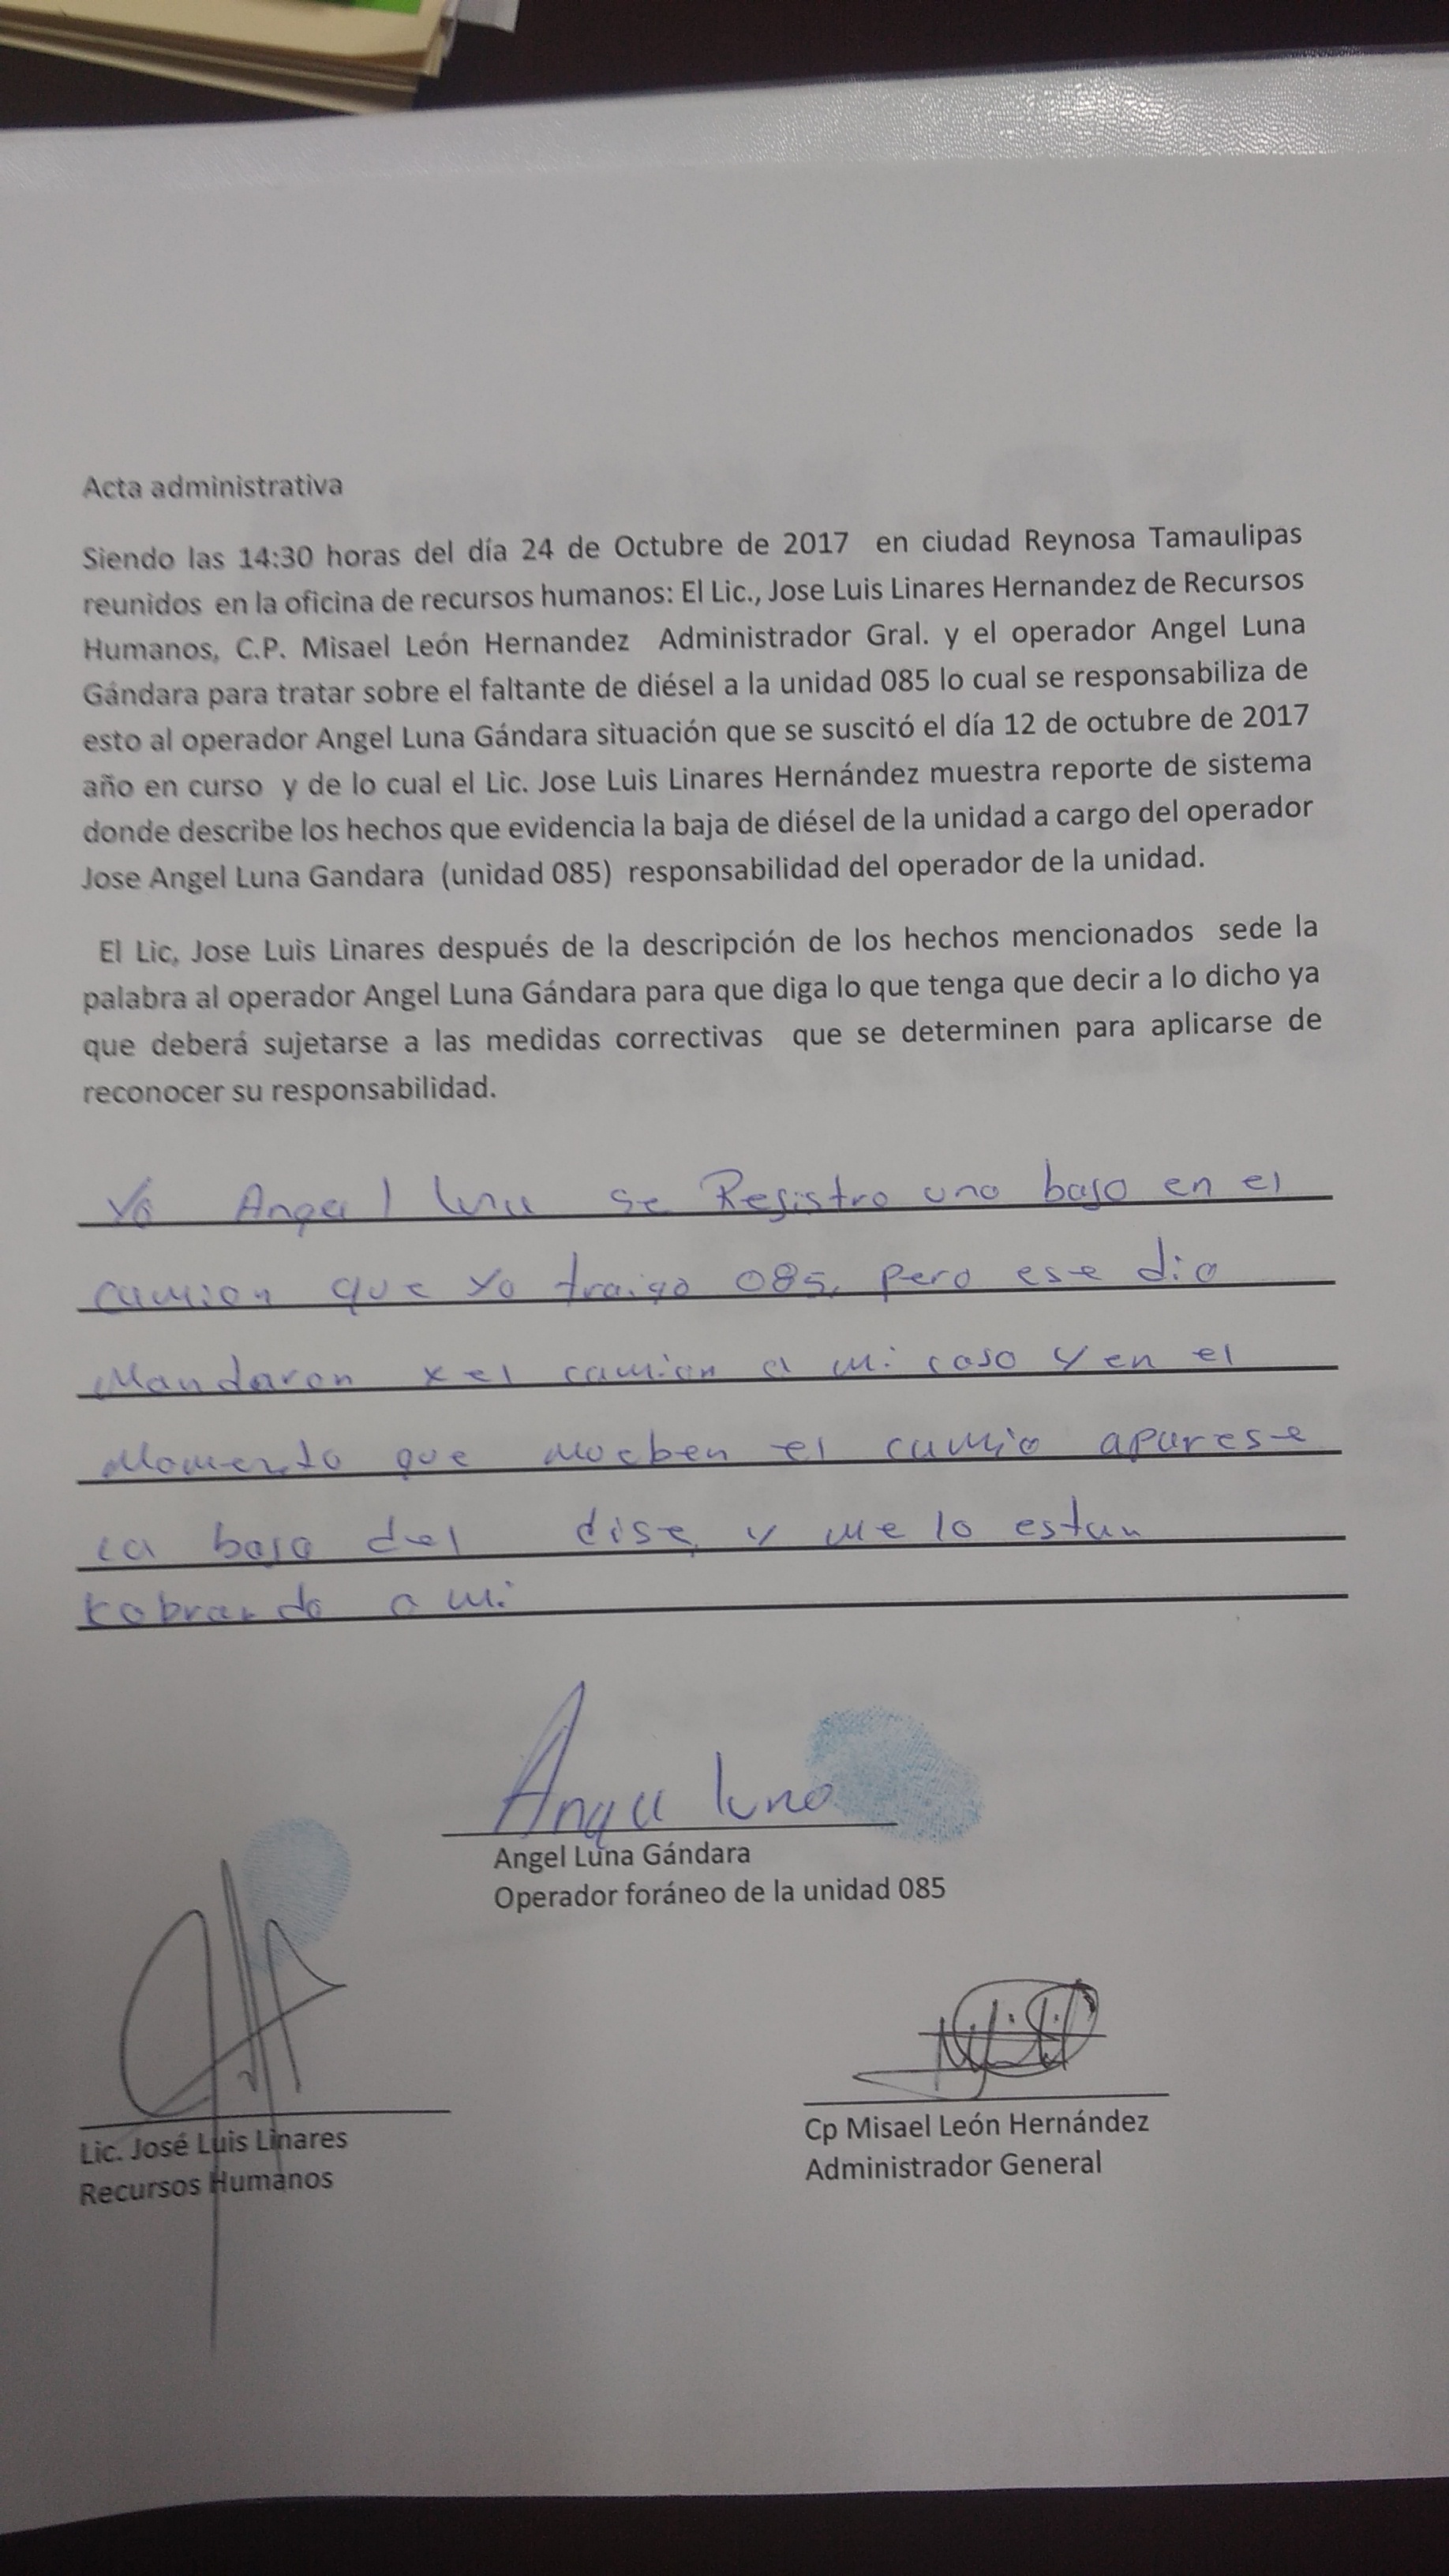 Acta administrativa
Siendo las 14:30 horas del día 24 de Octubre de 2017 en ciudad Reynosa Tamaulipas
reunidos en la oficina de recursos humanos: El Lic., Jose Luis Linares Hernandez de Recursos
Humanos, C.P. Misael León Hernandez Administrador Gral. y el operador Angel Luna
Gándara para tratar sobre el faltante de diésel a la unidad 085 lo cual se responsabiliza de
esto al operador Angel Luna Gándara situación que se suscitó el día 12 de octubre de 2017
año en curso y de lo cual el Lic. Jose Luis Linares Hernández muestra reporte de sistema
donde describe los hechos que evidencia la baja de diésel de la unidad a cargo del operador
Jose Angel Luna Gandara (unidad 085) responsabilidad del operador de la unidad.
El Lic, Jose Luis Linares después de la descripción de los hechos mencionados sede la
palabra al operador Angel Luna Gándara para que diga lo que tenga que decir a lo dicho ya
que deberá sujetarse a las medidas correctivas que se determinen para aplicarse de
reconocer su responsabilidad.
Yo Angel luna se Registro una baja en el
camion que yo traigo 085, pero ese dia
Mandaron x el camion a mi casa y en el
Momento que mueben el camio aparese
la baja del dise, y me lo estan
kobrando a mi
Angel luna
Angel Luna Gándara
Operador foráneo de la unidad 085
Lic. José Luis Linares
Recursos Humanos
Cp Misael León Hernández
Administrador General